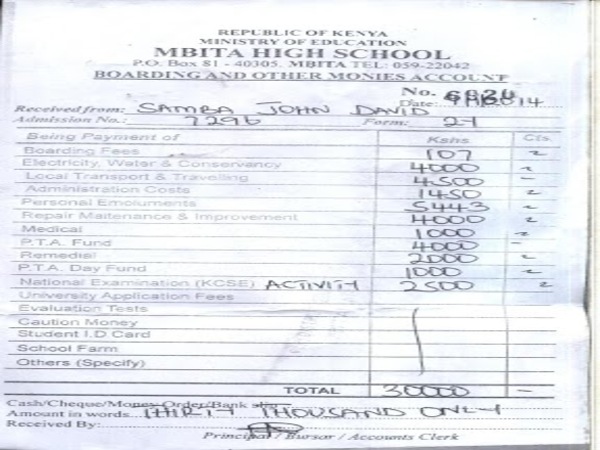 REPUBLIC OF KENYA
MINISTRY OF EDUCATION
MBITA HIGH SCHOOL
P.O. Box 81 - 40305. MBITA TEL: 059-22042
BOARDING AND OTHER MONIES ACCOUNT
No.
Received from: SAMBA JOHN DAVID Date:
Admission No.: 7296 Form:
Being Payment of Kshs Cts
Boarding Fees 107
Electricity, Water & Conservancy 4000
Local Transport & Travelling 4500
Administration Costs 1450
Personal Emoluments 5443
Repair Maitenance & Improvement 4000
Medical 1000
P.T.A. Fund 4000 -
Remedial 2000
P.T.A. Day Fund 1000
National Examination (KCSE) ACTIVITY 2500
University Application Fees
Evaluation Tests
Caution Money
Student I.D Card
School Farm
Others (Specify)
TOTAL 30000 -
Cash/Cheque/Money Order/Bank
Amount in words THIRTY THOUSAND ONLY
Received By:
Principal / Bursar / Accounts Clerk